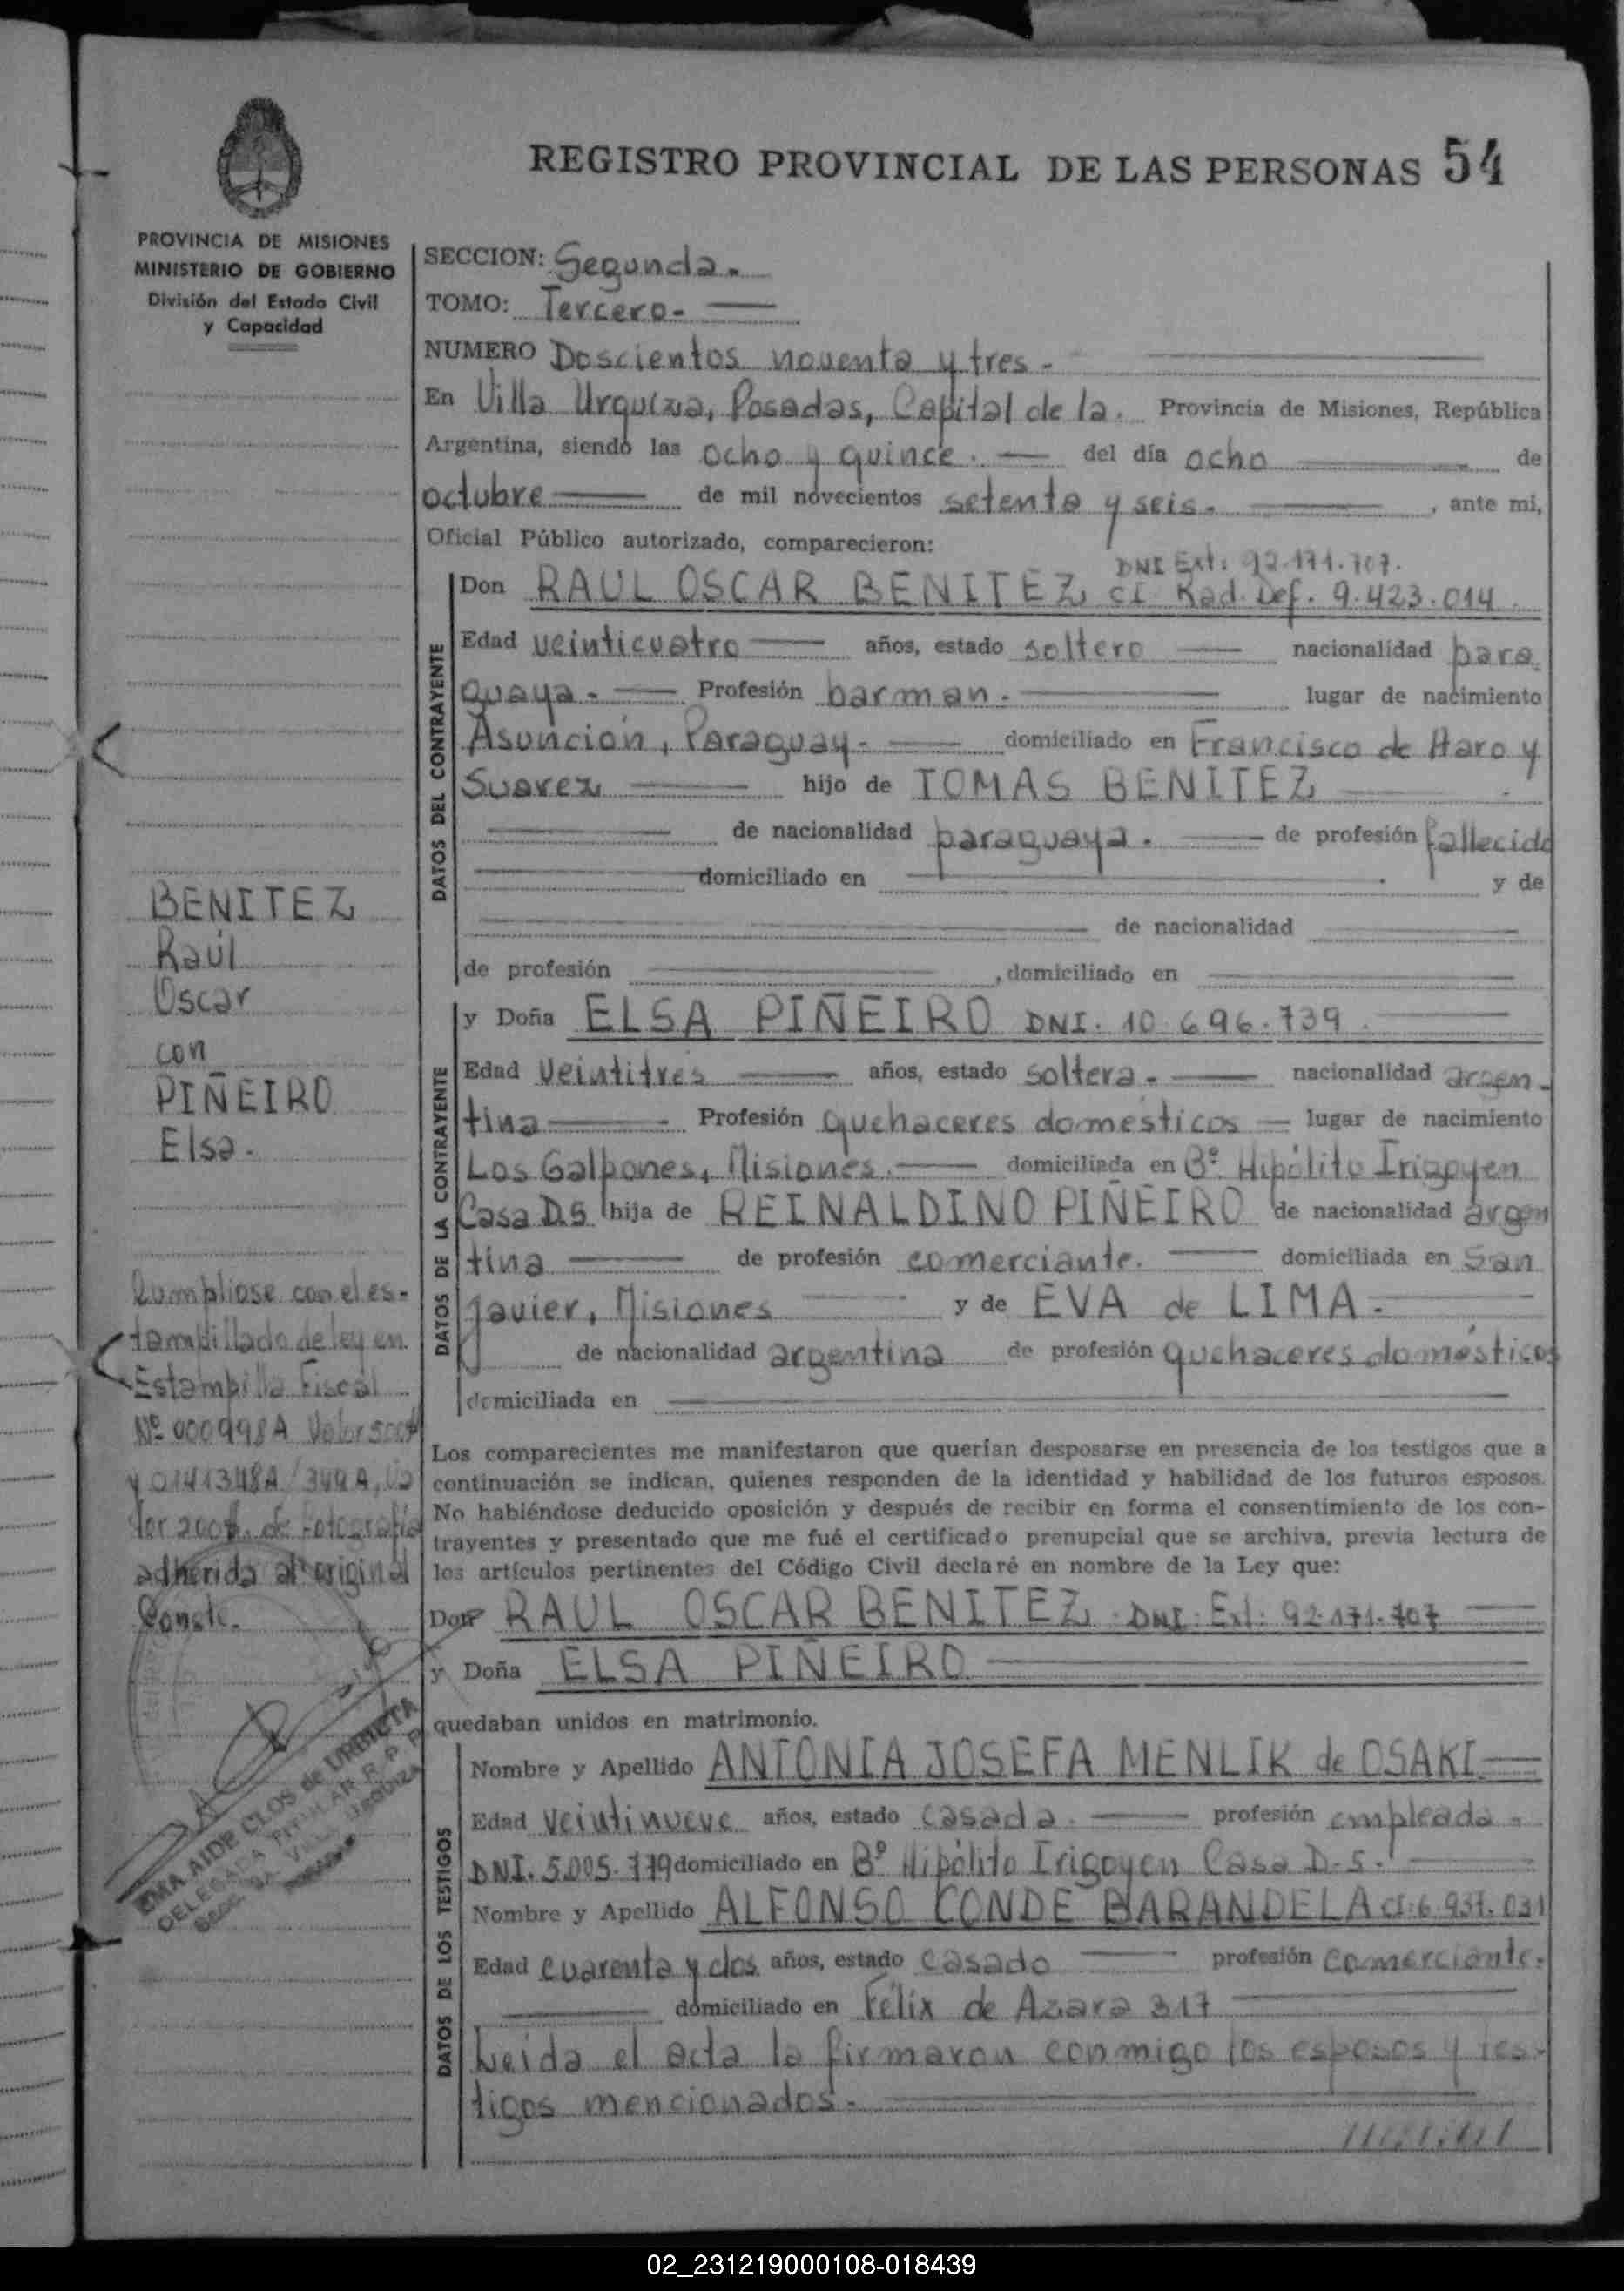 REGISTRO PROVINCIAL DE LAS PERSONAS 54
PROVINCIA DE MISIONES
MINISTERIO DE GOBIERNO
División del Estado Civil
y Capacidad
SECCION: Segunda.
TOMO: Tercero-
NUMERO Doscientos noventa y tres-
En Villa Urquiza, Posadas, Capital de la. Provincia de Misiones, República
Argentina, siendo las ocho y quince. del día ocho de
octubre de mil novecientos setenta y seis. , ante mi,
Oficial Público autorizado, comparecieron:
DNI Ext: 92.171.707.
Don RAUL OSCAR BENITEZ CI Rad. Def. 9.423.014.
DATOS DEL CONTRAYENTE
Edad veinticuatro años, estado soltero nacionalidad para
guaya. Profesión barman. lugar de nacimiento
Asunción, Paraguay. domiciliado en Francisco de Haro y
Suarez hijo de TOMAS BENITEZ
de nacionalidad paraguaya. de profesión fallecido
domiciliado en y de
de nacionalidad
de profesión , domiciliado en
BENITEZ
Raúl
Oscar
con
PIÑEIRO
Elsa.
y Doña ELSA PIÑEIRO DNI. 10.696.739.
DATOS DE LA CONTRAYENTE
Edad Veintitres años, estado soltera. nacionalidad argen-
tina Profesión quehaceres domésticos lugar de nacimiento
Los Galpones, Misiones. domiciliada en Bº Hipólito Irigoyen
Casa D.5 hija de REINALDINO PIÑEIRO de nacionalidad argen
tina de profesión comerciante. domiciliada en San
Javier, Misiones y de EVA de LIMA.
de nacionalidad argentina de profesión quehaceres domésticos
domiciliada en
Cumpliose con el es-
tampillado de ley en
Estampilla Fiscal
Nº 000998A Valor
y 0141348A/349A, Va
lor 200$. de Fotografía
adherida al original
Conste.
Los comparecientes me manifestaron que querían desposarse en presencia de los testigos que a
continuación se indican, quienes responden de la identidad y habilidad de los futuros esposos.
No habiéndose deducido oposición y después de recibir en forma el consentimiento de los con-
trayentes y presentado que me fué el certificado prenupcial que se archiva, previa lectura de
los artículos pertinentes del Código Civil declaré en nombre de la Ley que:
Don RAUL OSCAR BENITEZ. DNI: Ext: 92.171.707
y Doña ELSA PIÑEIRO
quedaban unidos en matrimonio.
AIDE CLOS de URDIETA
DELEGADA TITULAR R. P. P.
DATOS DE LOS TESTIGOS
Nombre y Apellido ANTONIA JOSEFA MENLIK de OSAKI
Edad veintinueve años, estado casada. profesión empleada.
DNI. 5.005.779 domiciliado en Bº Hipólito Irigoyen Casa D-5.
Nombre y Apellido ALFONSO CONDE BARANDELA CI:6.937.031
Edad cuarenta y dos años, estado casado profesión comerciante.
domiciliado en Félix de Azara 317
Leida el acta la firmaron conmigo los esposos y tes-
tigos mencionados.
02_231219000108-018439